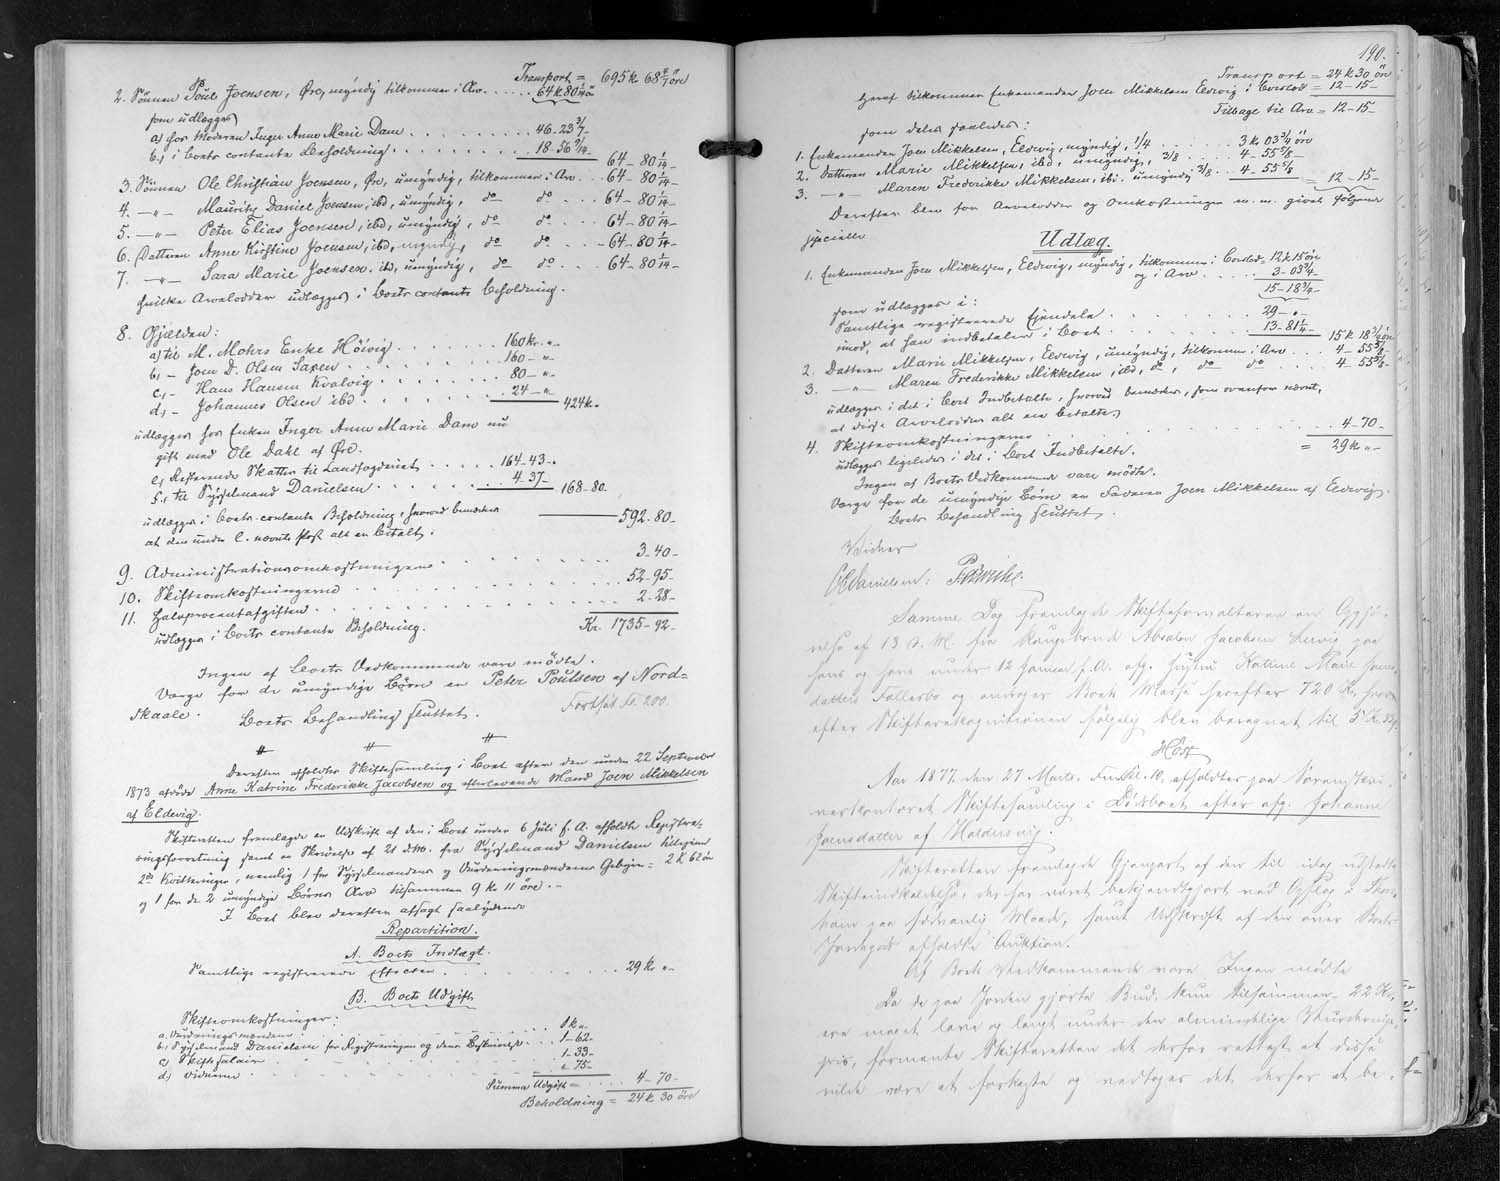 Transport = 695 k. 68 4/7 öre
2. Sönnen Poul Joensen, Øre, myndig tilkommer i Arv . . . . . 64 k 80 1/14 ö
som udlægges
a) hos Moderen Inger Anne Marie Dam . . . . . . . . . 46-23 3/7-
b, i Boets contante Beholdning . . . . . . . . . 18-56 9/14- 64-80 1/14-
3. Sönnen Ole Christian Joensen, Øre, umyndig, tilkommer i Arv . . . 64-80 1/14-
4. -"- Mauritz Daniel Joensen, ibd, umyndig, do do . . . 64-80 1/14-
5. -"- Peter Elias Joensen, ibd, umyndig, do do . . . 64-80 1/14-
6. Datteren Anne Kirstine Joensen, ibd, myndig, do do . . . 64-80 1/14-
7. -"- Sara Marie Joensen, ibd, umyndig, do do . . . 64-80 1/14-
hvilke Arvelodder udlægges i Boets contante Beholdning.
8. Gjælden:
a) til M. Mohrs Enke Hösvig . . . . . . 160 kr. "
b, - Joen D. Olsen Saxen . . . . . . 160 - "
c, - Hans Hansen Kvalvig . . . . . . 80 - "
d, - Johannes Olsen ibd . . . . . . 24 - " 424 k "
udlægges hos Enken Inger Anne Marie Dam nu
gift med Ole Dahl af Øre.
e, Resterende Skatter til Landfogderiet . . . . . 164-43-
f, til Sysselmand Danielsen . . . . . . 4-37- 168-80.
udlægges i Boets contante Beholdning, hvorved bemærkes 592-80-
at den under e. nævnte Post alt er betalt.
9. Administrationsomkostningerne . . . . . . 3-40-
10. Skifteomkostningerne . . . . . . 52-95-
11. Halvprocentafgiften . . . . . . 2-28-
udlægges i Boets contante Beholdning. Kr. 1735-92-
Ingen af Boets Vedkommende vare mödte.
Værge for de umyndige Børn er Peter Poulsen af Nord=
skaale. Boets Behandling sluttet. Fortsat Fo. 200.
Derefter afholdtes Skiftesamling i Boet efter den under 22 September
1873 afdöde Anne Katrine Frederikke Jacobsen og efterlevende Mand Joen Mikkelsen
af Eldevig.
Skifteretten fremlagde en Udskrift af den i Boet under 6 Juli f. A. afholdte Registre=
ringsforretning samt en Skrivelse af 21 d. M. fra Sysselmand Danielsen tilligemed
2de Kvitteringer, nemlig 1 for Sysselmandens og Vurderingsmændenes Gebyrer = 2 K 62 öre
og 1 for de 2 umyndige Börns Arv tilsammen 9 kr 11 öre. -
I Boet blev derefter afsagt saalydende
Repartition.
A. Boets Indtægt.
Samtlige registrerede Effecter . . . . . . 29 kr "
B. Boets Udgift
Skifteomkostninger:
a. Vurderingsmændene . . . . . . 1 k ".
b, Sysselmand Danielsen for Registreringen og dens Beskrivelse . . . 1-62-
c) Skiftesalair . . . . . . 1-33-
d) Vidnerne . . . . . . "-75-
Summa Udgift = . . . . 4-70-
Beholdning = 24 k 30 öre
190.
Transport = 24 k 30 öre
Heraf tilkommer Enkemanden Joen Mikkelsen Eldevig i Boeslod = 12-15-
Tilbage til Arv = 12-15-
som deles saaledes:
1. Enkemanden Joen Mikkelsen, Eldevig, myndig, 1/4 . . . . . 3 k 03 3/4 öre
2. Datteren Marie Mikkelsen, ibd, umyndig, 3/8 . . . 4-55 5/8-
3. -"- Maren Frederikke Mikkelsen, ibd. umyndig 3/8 . . . 4-55 5/8- = 12-15-
Derefter blev for Arvelodder og Omkostninger m. m. givet følgende
specielle
Udlæg.
1. Enkemanden Joen Mikkelsen, Eldevig, myndig, tilkommer i Boeslod 12 k 15 öre
og i Arv . . . . 3-03 3/4-
15-18 3/4-
som udlægges i:
Samtlige registrerede Ejendele . . . . . . 29 - "-
imod, at han indbetaler i Boet . . . . . . 13-81 1/4- 15 k 18 3/4 öre
2. Datteren Marie Mikkelsen, Eldevig, umyndig, tilkommer i Arv . . . 4-55 5/8-
3. -"- Maren Frederikke Mikkelsen, ibd, do, do do . . . . 4-55 5/8-
udlægges i det i Boet Indbetalte, hvorved bemærkes, som ovenfor nævnt,
at disse Arvelodder alt ere betalte.
4. Skifteomkostningerne . . . . . . 4-70-
udlægges ligeledes i det i Boet Indbetalte. = 29 kr "-
Ingen af Boets Vedkommende vare mödte.
Værge for de umyndige Börn er Faderen Joen Mikkelsen af Eldevig.
Boets Behandling sluttet.
Vidner
Danielsen:
Samme Dag fremlagde Skifteforvalteren en Opgjö-
relse af 13 d. M. fra Kongsbonde Absalon Jacobsen Lervig paa
hans og hans under 12 Januar f. A. afg. Hustru Katrine Marie Joens-
datters Fællesbo og andrager Boets Masse herefter 720 Kr., hvor-
efter Skifterekognitionen følgelig blev beregnet til
Host
Aar 1877 den 27 Marts, Fm. Kl. 10, afholdtes paa Sorenskri-
verkontoret Skiftesamling i Dødsboet efter afg. Johanne
Joensdatter af Haldersvig.
Skifteretten fremlagde Gjenpart af den til idag udstedte
Skifteindkaldelse, der har været bekjendtgjort ved Opslag i Thors-
havn paa sædvanlig Maade, samt Udskrift af den over Boets
Jordegods afholdte Auktion.
Af Boets Vedkommende vare Ingen mödte
Da de paa Jorden gjorte Bud, kun tilsammen = 22 Kr.,
ere meget lave og langt under den almindelige Vurderings-
pris, formente Skifteretten det derfor rettest at disse
vilde være at forkaste og vedtoges det derfor at be-